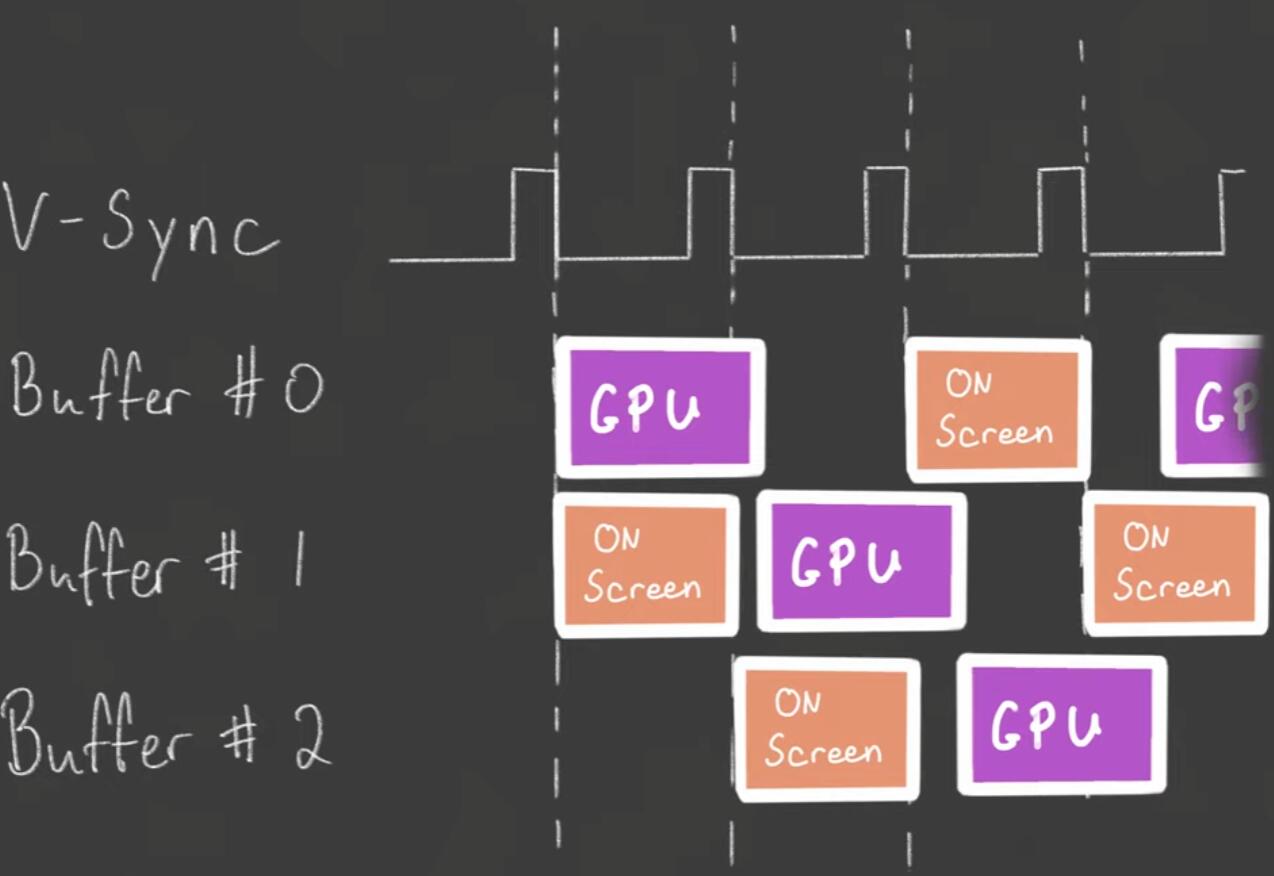 V-Sync
Buffer #0
GPU
ON
Screen
GP
Buffer # 1
ON
Screen
GPU
ON
Screen
Buffer # 2
ON
Screen
GPU